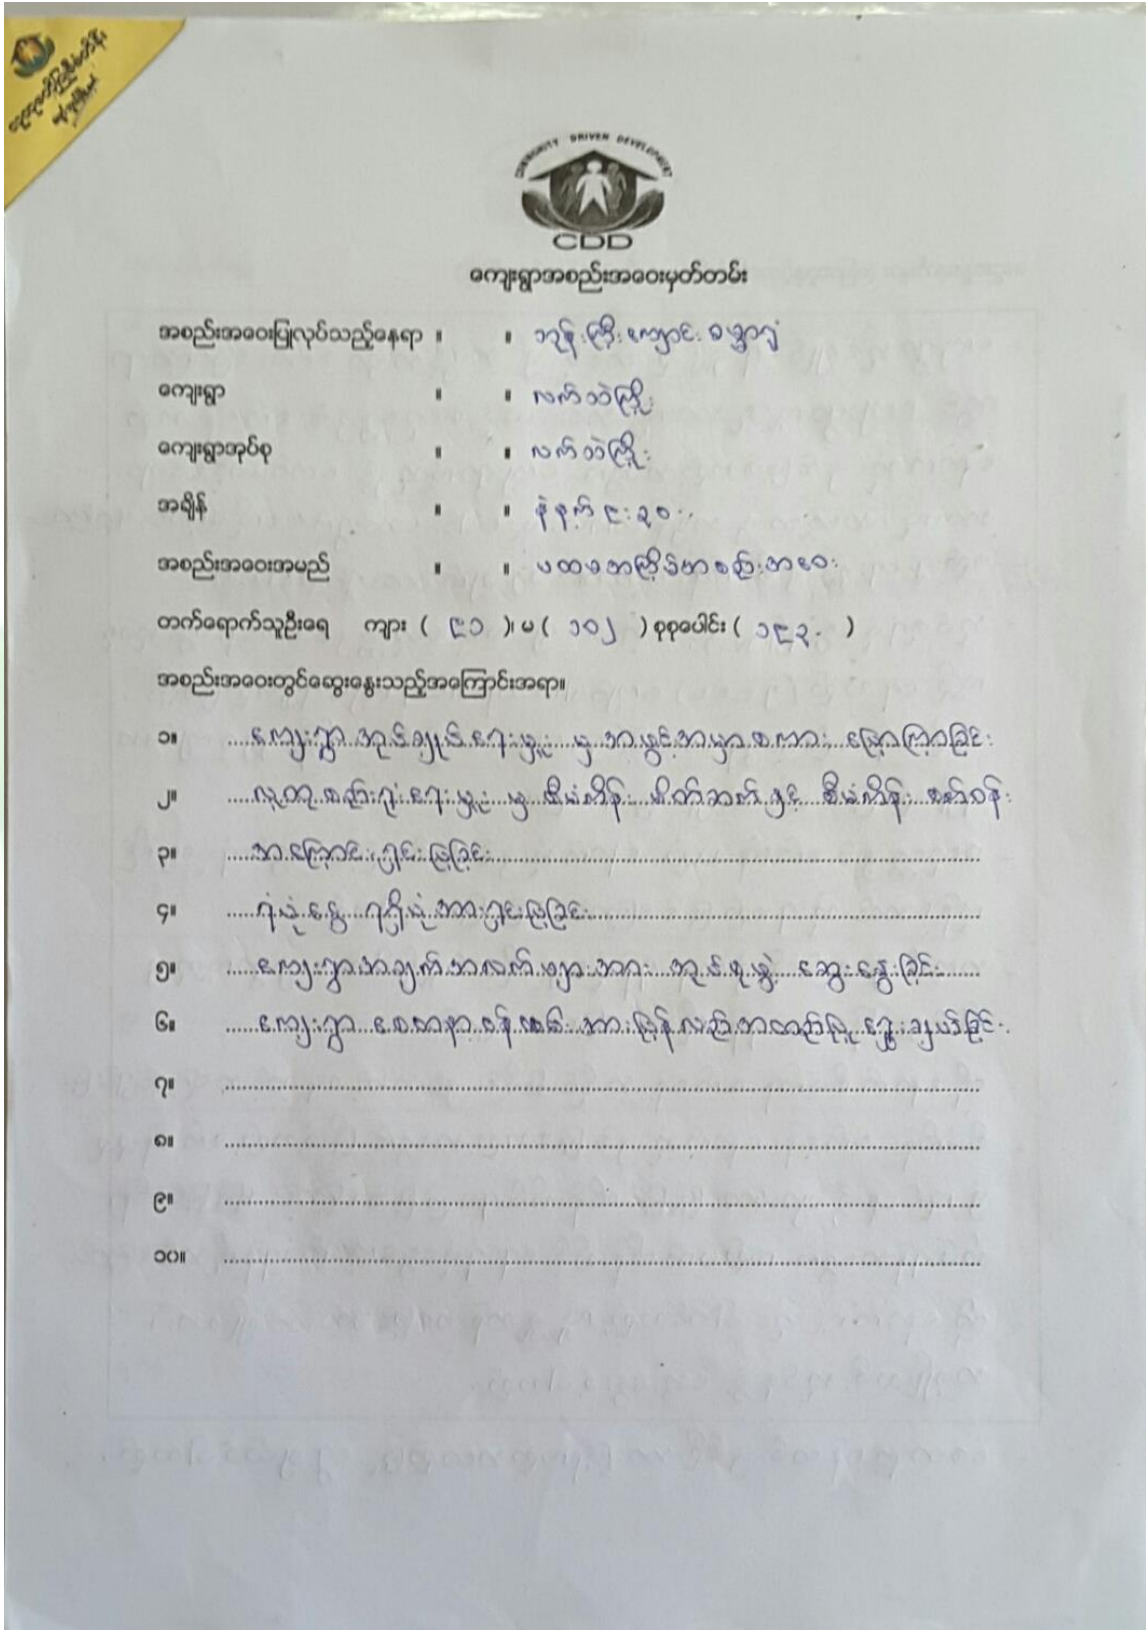 လူထုဗဟိုပြုစီမံကိန်း
COMMUNITY DRIVEN DEVELOPMENT
CDD
ကျေးရွာအစည်းအဝေးမှတ်တမ်း
အစည်းအဝေးပြုလုပ်သည့်နေရာ ။ ။ ဘုန်းကြီးကျောင်း ဓမ္မာရုံ
ကျေးရွာ ။ ။ လက်ဘဲကြိုး
ကျေးရွာအုပ်စု ။ ။ လက်ဘဲကြိုး
အချိန် ။ ။ နံနက် ၉:၃၀
အစည်းအဝေးအမည် ။ ။ ပထမအကြိမ်အစည်းအဝေး
တက်ရောက်သူဦးရေ ကျား ( ၉၁ )၊ မ ( ၁၀၂ ) စုစုပေါင်း ( ၁၉၃ )
အစည်းအဝေးတွင်ဆွေးနွေးသည့်အကြောင်းအရာ။
၁။ ကျေးရွာအုပ်ချုပ်ရေးမှူးမှ အဖွင့်အမှာစကား ပြောကြားခြင်း
၂။ လူထုစည်းရုံးရေးမှူးမှ စီမံကိန်းမိတ်ဆက်နှင့် စီမံကိန်းစက်ဝန်း
၃။ အကြောင်းရှင်းပြခြင်း
၄။ ရံပုံငွေ ရရှိပုံအားရှင်းပြခြင်း
၅။ ကျေးရွာအချက်အလက်များအား အုပ်စုဖွဲ့ ဆွေးနွေးခြင်း
၆။ ကျေးရွာစေတနာ့ဝန်ထမ်းအားပြန်လည်အတည်ပြုရွေးချယ်ခြင်း
၇။
၈။
၉။
၁၀။